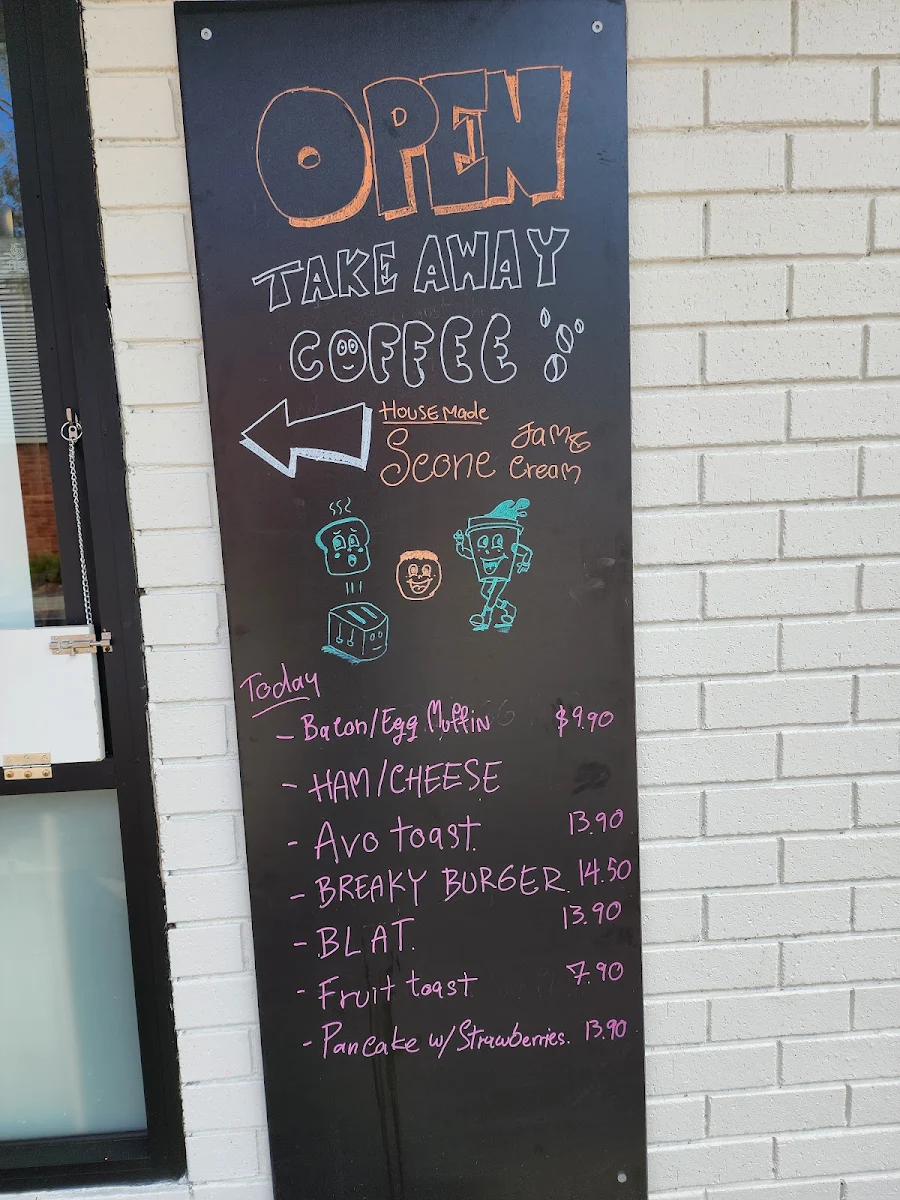 OPEN
TAKE AWAY
COFFEE
HOUSE Made
Scone Jam & Cream
Today
- Bacon/Egg Muffin $9.90
- HAM/CHEESE
- Avo toast 13.90
- BREAKY BURGER. 14.50
- BLAT. 13.90
- Fruit toast 7.90
- Pancake w/Strawberries. 13.90